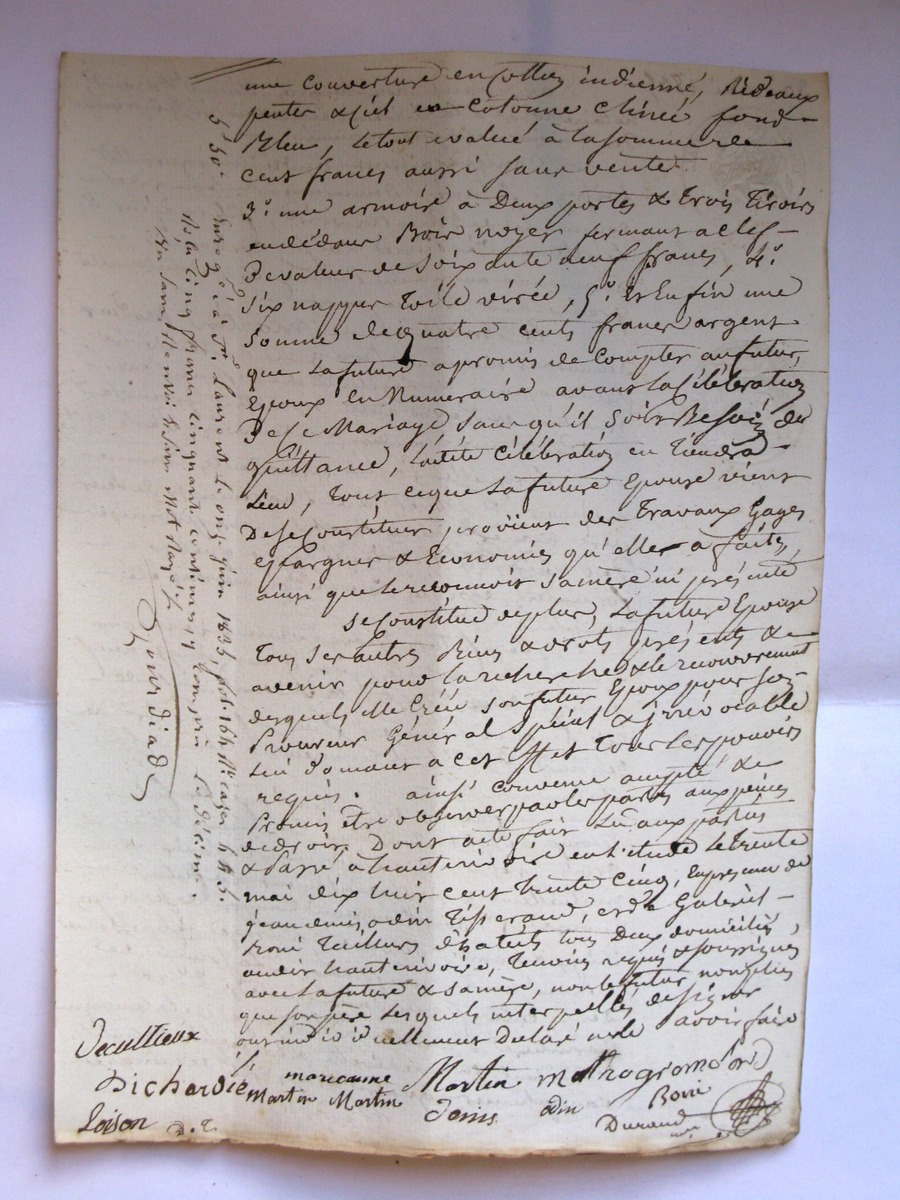 une couverture en Cotton indienne, Rideaux
pentes & Ciel en Cotonne Chinée fond
Bleu, letout evalué à la somme de
cent francs aussi sans vente.
3º. une armoire à Deux portes & Trois Tiroirs
endedans Bois noyer fermant a clef
De valeur de Soixante neuf francs, 4º.
Six nappes Toile , 5º. Et Enfin une
Somme de quatre cents francs argent
que La future a promis de Compter aufutur
Epoux En Numeraire avant La Célébration
De Ce Mariage sans qu'il Soit Besoin de
quittance, Ladite Célébration en Tiendra
Lieu, Tout ceque La future Epouse vient
De se Constituer, provient des Travaux Gages
Epargnes & Economies qu'elle a faites,
ainsi que le reconnoit samère ici présente
se Constitue deplus La future Epouse
Tous ses autres Biens & droits présents &
avenir pour la recherche & le recouvrement
desquels Elle Créé son futur Epoux pour son
Procureur Général Spécial & irrévocable
Lui Donnant a cet Effet Tous Les pouvoirs
requis. ainsi convenu accepté &
Promis être observer par les parties aux peines
de droit. Dont acte fait Lu aux parties
& Passé à hauterivoire en L'etude Le trente
mai dix huit cent trente Cinq, En presence de
jean denis odin Tisserand, et de Gabriel
Tailleur d'habits tous Deux domiciliés
audit hauterivoire, Temoins requis & soussignés
avec La future & samère, non le futur nonplus
que son père Lesquels interpellés de signer
ont individuellement Declaré ne le savoir faire
Decultieux
Dichardié
Loison
D. T.
marieanne
Martin Martin
Martin
Denis odin
Durand
5º 50ᶜ
Enregᵗʳᵉ à Sᵗ. Laurent le onze juin 1835, fol. 164 Rº. cases 4 & 5.
Reçu cinq francs cinquante centimes, y compris le décime.